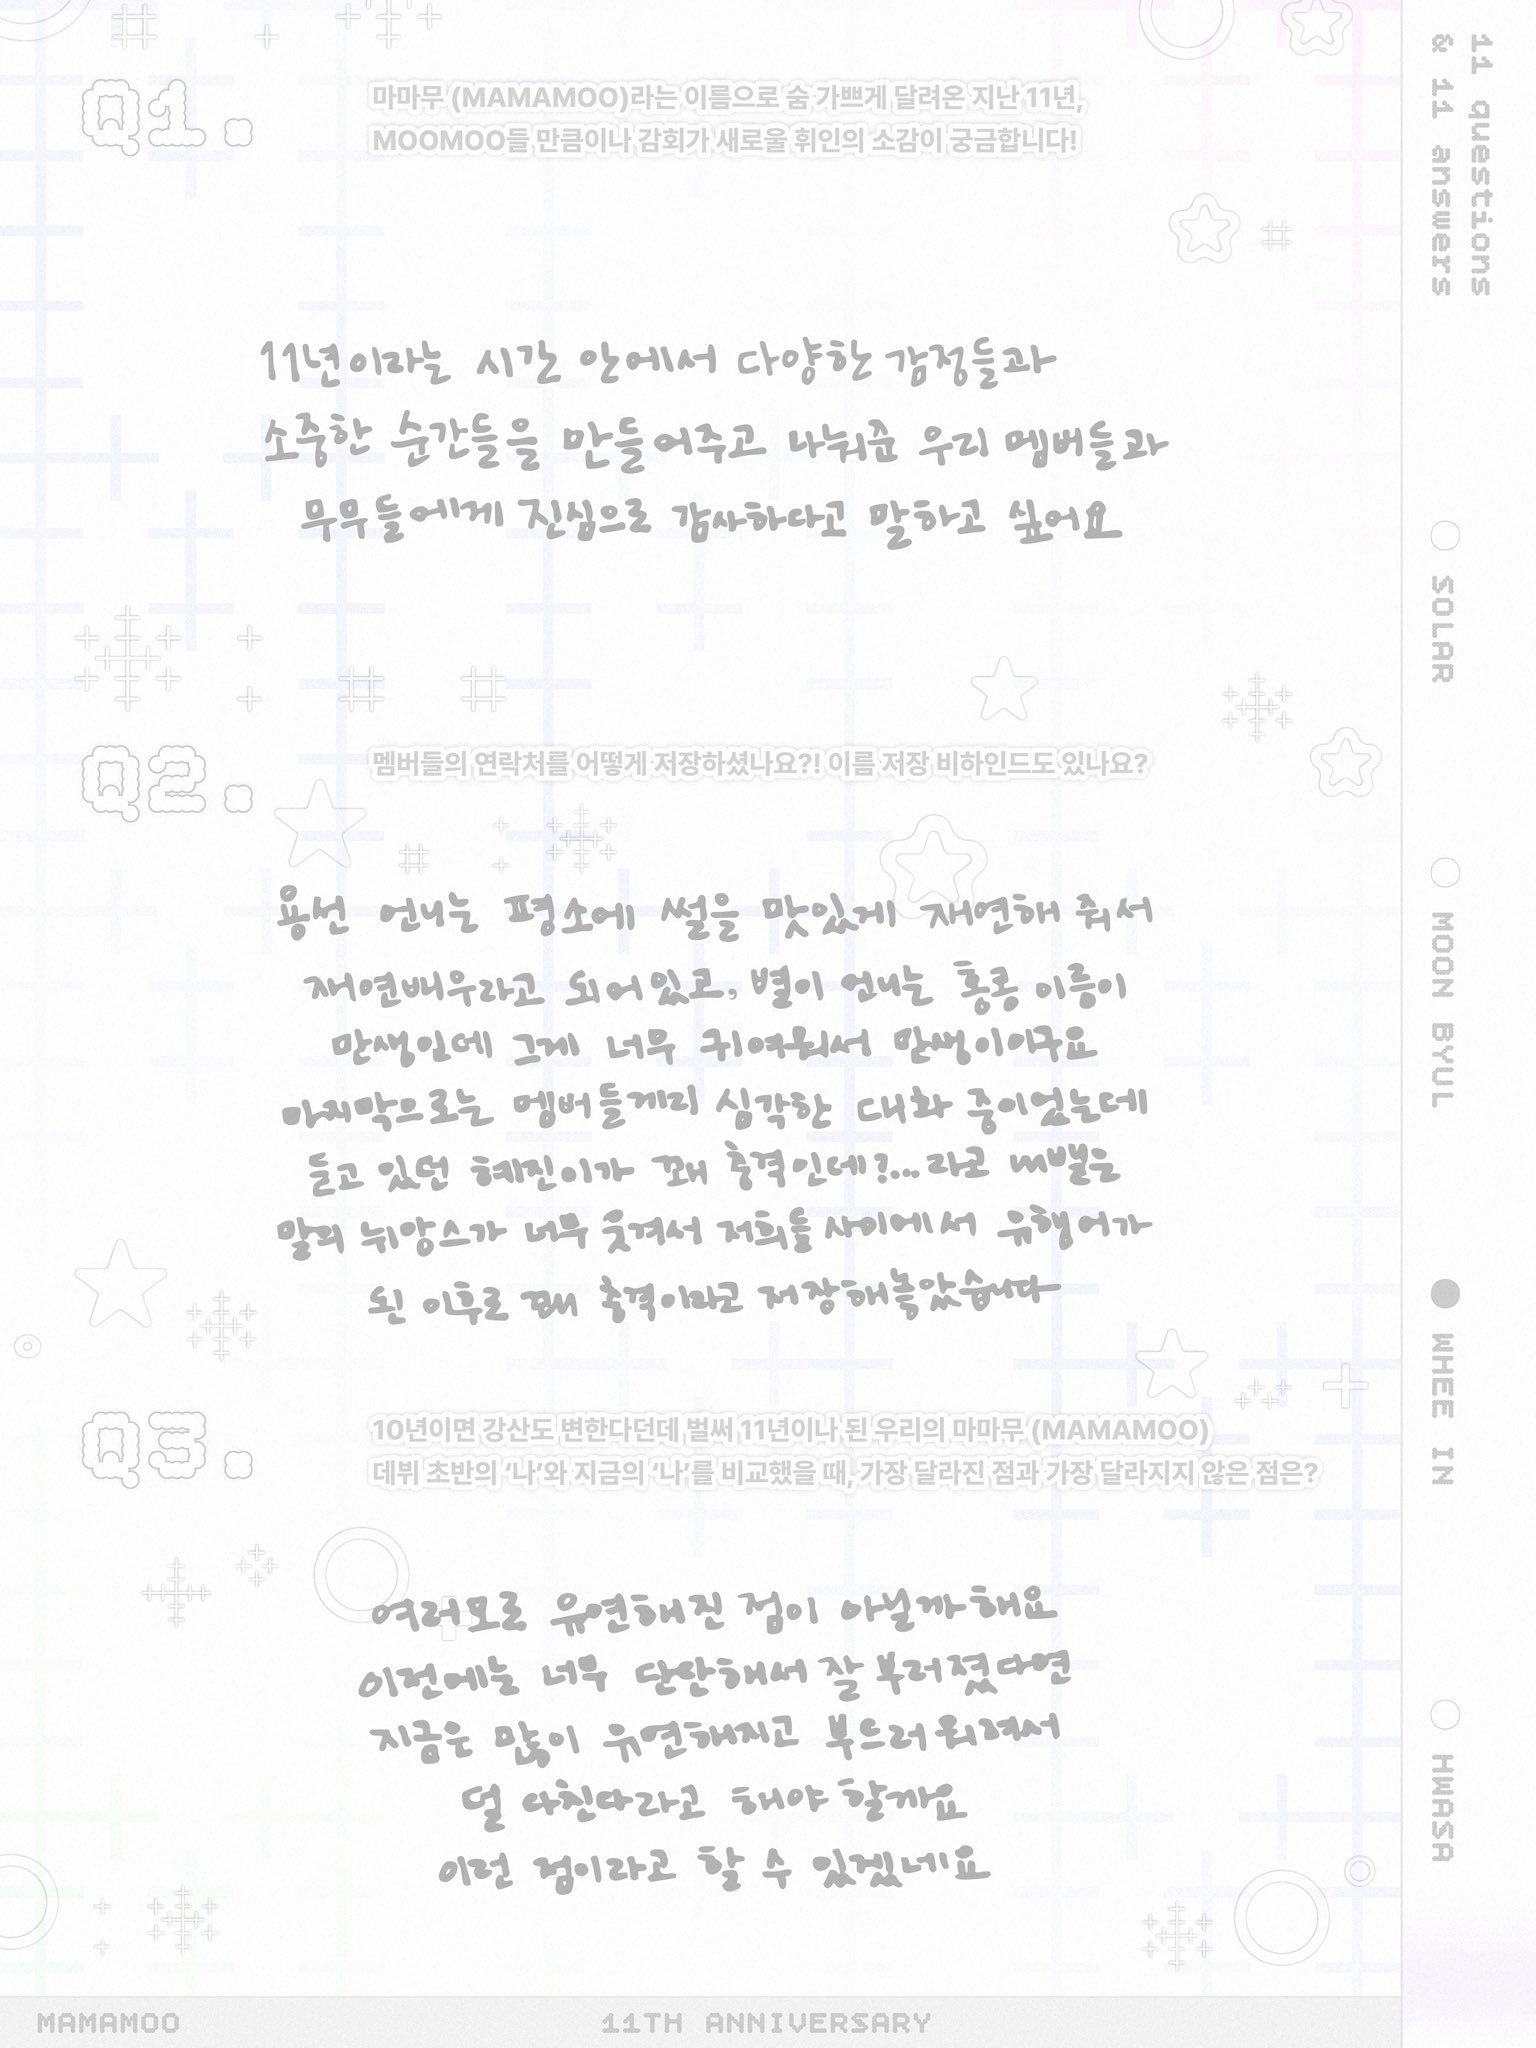 11 questions
& 11 answers
Q1.
마마무 (MAMAMOO)라는 이름으로 숨 가쁘게 달려온 지난 11년,
MOOMOO들 만큼이나 감회가 새로울 휘인의 소감이 궁금합니다!
11년이라는 시간 안에서 다양한 감정들과
소중한 순간들을 만들어주고 나눠준 우리 멤버들과
무무들에게 진심으로 감사하다고 말하고 싶어요
Q2.
멤버들의 연락처를 어떻게 저장하셨나요?! 이름 저장 비하인드도 있나요?
용선 언니는 평소에 썰을 맛있게 재연해 줘서
재연배우라고 되어있고, 별이 언니는 홍콩 이름이
만쌩인데 그게 너무 귀여워서 만쌩이이구요
마지막으로는 멤버들끼리 심각한 대화 중이었는데
듣고 있던 혜진이가 꽤 충격인데?... 라고 내뱉은
말의 뉘앙스가 너무 웃겨서 저희들 사이에서 유행어가
된 이후로 꽤 충격이라고 저장해놓았습니다
Q3.
10년이면 강산도 변한다던데 벌써 11년이나 된 우리의 마마무 (MAMAMOO)
데뷔 초반의 ‘나’와 지금의 ‘나’를 비교했을 때, 가장 달라진 점과 가장 달라지지 않은 점은?
여러모로 유연해진 점이 아닐까 해요
이전에는 너무 단단해서 잘 부러졌다면
지금은 많이 유연해지고 부드러워져서
덜 다친다라고 해야 할까요
이런 점이라고 할 수 있겠네요
SOLAR
MOON BYUL
WHEE IN
HWASA
MAMAMOO
11TH ANNIVERSARY